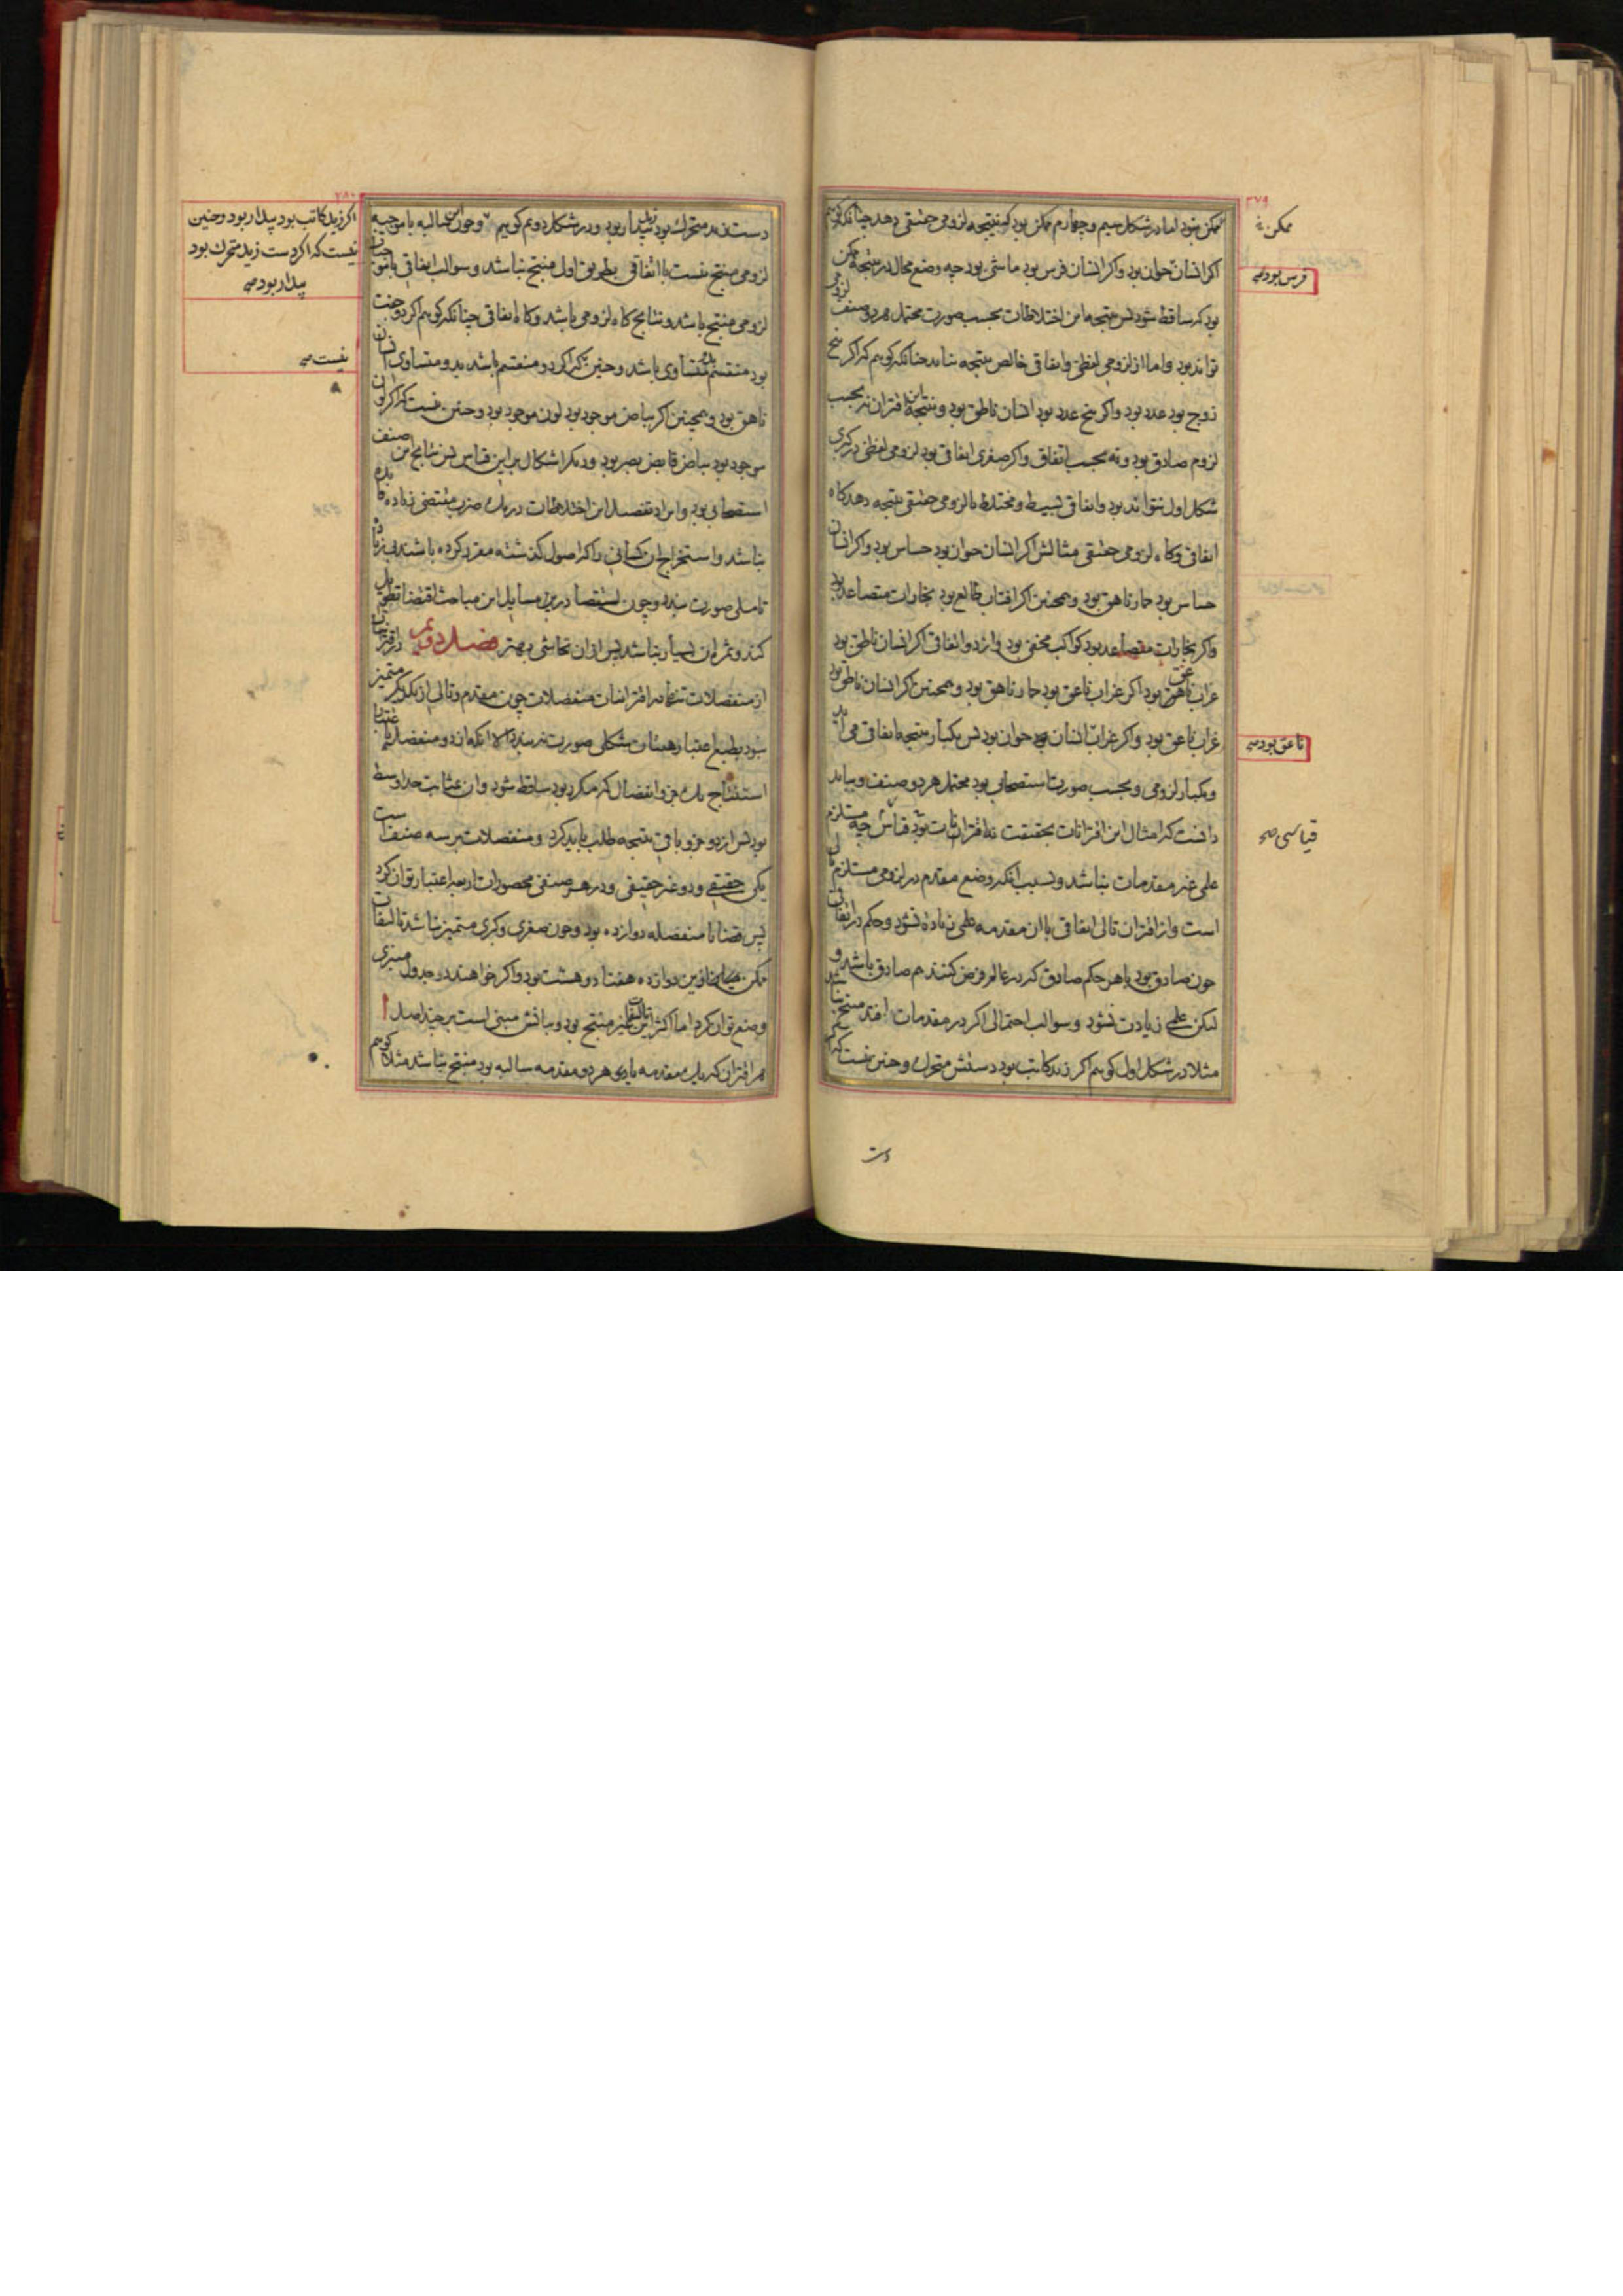 ۲۷۹
ممکن نبود اما در شکل سیم و چهارم ممکن بود که نتیجه لزومی حقیقی دهد چنانکه گوییم
اگر انسان حیوان بود و اگر انسان فرس بود ماشی بود چه وضع محال در نتیجه ممکن
بود که ساقط شود پس نتیجه این اختلاطات بحسب صورت محتمل هر دو صنف لزومی
تواند بود و اما از لزومی لفظی و اتفاقی خالص نتیجه نیاید چنانکه گوییم که اگر پنج
زوج بود عدد بود و اگر پنج عدد بود انسان ناطق بود و نتیجه این اقتران نه بحسب
لزوم صادق بود و نه بحسب اتفاق و اگر صغری اتفاقی بود لزومی لفظی در کبری
شکل اول نتواند بود و اتفاقی بسیط و مختلط با لزومی حقیقی نتیجه دهد گاه
اتفاقی و گاه لزومی حقیقی مثالش اگر انسان حیوان بود حساس بود و اگر انسان
حساس بود حمار ناهق بود و همچنین اگر افتاب طالع بود بخارات متصاعد بود
و اگر بخارات متصاعد بود کواکب مختفی بود و از دو اتفاقی اگر انسان ناطق بود
غراب ناعق بود اگر غراب ناعق بود حمار ناهق بود و همچنین اگر انسان ناطق بود
غراب ناعق بود و اگر غراب انسان بود حیوان بود پس یکبار نتیجه اتفاقی می آید
و یکبار لزومی و بحسب صورت استصحابی بود محتمل هر دو صنف و بباید
دانست که امثال این اقترانات بحقیقت نه اقترانات بود قیاس چه مستلزم
علمی غیر مقدمات نباشد و بسبب آنکه وضع مقدم در لزومی مستلزم تالی
است و از اقتران تالی اتفاقی با ان مقدمه علمی زیاده نشود و حکم در اتفاقی
چون صادق بود با هر حکم صادق که در عالم فرض کنند هم صادق باشد و
لیکن علمی زیادت نشود و سوالب احتمالی اگر در مقدمات افتد منتج نباشد
مثلا در شکل اول گوییم اگر زید کاتب بود دستش متحرک و چنین نیست که اگر
ممکن
فرس بود صح
ناعق بود صح
قیاسی صح
دست
۲۸۰
دست زید متحرک بود زید بیدار بود و در شکل دویم گوییم و چون این سالبه با موجبه
لزومی منتج نیست با اتفاقی بطریق اول منتج نباشد و سوالب اتفاقی با موجبات
لزومی منتج باشد و نتایج گاه لزومی باشد و گاه اتفاقی چنانکه گوییم اگر دو جفت
بود منقسم بمتساوی باشد و چنین که اگر دو منقسم باشد بدو متساوی انسان
ناهق بود و همچنین اگر بیاض موجود بود لون موجود بود و چنین نیست که اگر لون
موجود بود بیاض قابض بصر بود و دیگر اشکال بر این قیاس پس نتایج این صنف
استصحابی بود و ایراد تفصیل این اختلاطات در یک ضرب مقتضی زیاده فایده
نباشد و استخراج ان کسانی را که اصول گذشته مقرر کرده باشند بی زیاده
تاملی صورت بندد و چون استقصا در این مسایل این مباحث اقتضا تطویل
کند و ثمره ان بسیار نباشد پس از ان تحاشی بهتر فصل دویم در اقترانات
از منفصلات تنها در اقترانات منفصلات چون مقدم و تالی از یکدیگر متمیز
نبود بطبع اعتبار هیئات شکلی صورت نبندد الا انکه از دو منفصله باعتبار
استنتاج یک جزو انفصال که مکرر بود ساقط شود و ان بمثابت حد اوسط
بود پس از دو جزو باقی نتیجه طلب باید کرد و منفصلات بر سه صنف است
یکی حقیقی و دو غیر حقیقی و در هر صنفی محصورات اربعه اعتبار توان کرد
پس قضایا منفصله دوازده بود و چون صغری و کبری متمیز نباشد تالیفات
ممکن میان این دوازده هفتاد و هشت بود و اگر خواهند در جدول منبری
وضع توان کرد اما اکثر این تالیفات غیر منتج بود و بیانش مبنی است بر چند اصل ا
هر اقتران که یک مقدمه یا هر دو مقدمه سالبه بود منتج نباشد مثلا گوییم
اگر زید کاتب بود بیدار بود و چنین
نیست که اگر دست زید متحرک بود
بیدار بود صح
نیست صح